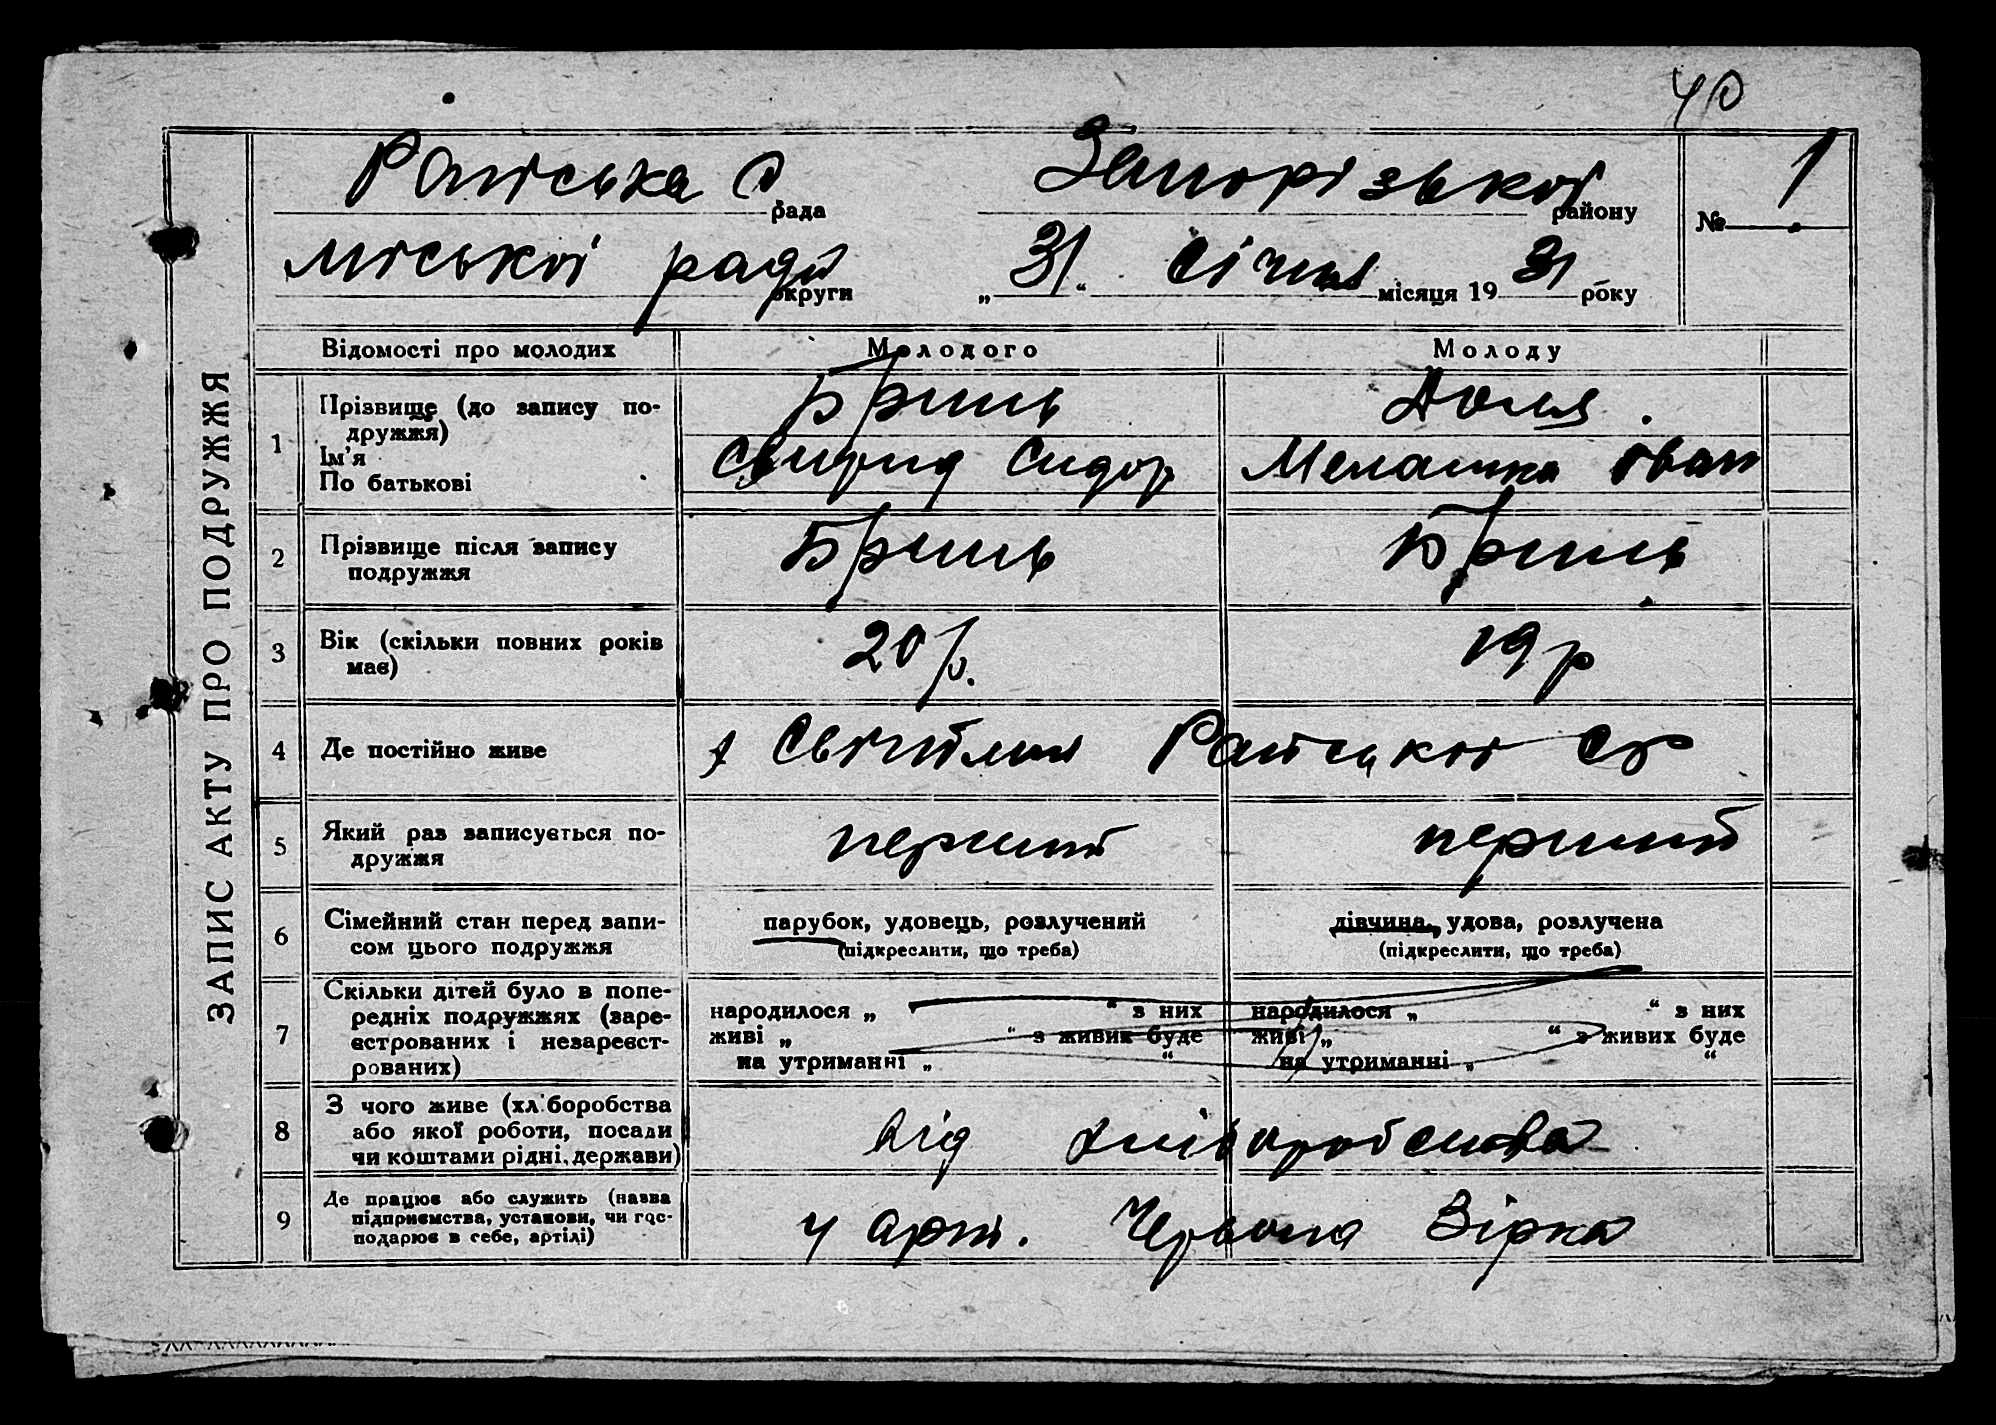 40
Райська с рада Запорізької району № 1
міської ради округи „31“ Січня місяця 1931 року
ЗАПИС АКТУ ПРО ПОДРУЖЖЯ
Відомості про молодих Молодого Молоду
1 Прізвище (до запису по-
дружжя)
Ім'я
По батькові
Бриль Доля.
Свирид Сидор. Мелашка Іван
2 Прізвище після запису
подружжя
Бриль Бриль
3 Вік (скільки повних років
має)
20 р. 19 р
4 Де постійно живе Райської СР
5 Який раз записується по-
дружжя
перший перший
6 Сімейний стан перед запи-
сом цього подружжя
парубок, удовець, розлучений
(підкреслити, що треба)
дівчина, удова, розлучена
(підкреслити, що треба)
7 Скільки дітей було в попе-
редніх подружжях (заре-
єстрованих і незареєст-
рованих)
народилося „ “ з них
живі „ “ з живих буде
на утриманні „ “
народилося „ “ з них
живі „ “ з живих буде
на утриманні „ “
8 З чого живе (хліборобства
або якої роботи, посади
чи коштами рідні, держави)
від хліборобства
9 Де працює або служить (назва
підприємства, установи, чи гос-
подарює в себе, артілі)
у арт. Червона Зірка